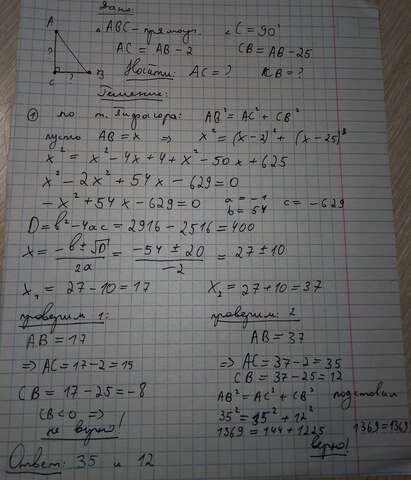 Дано:
△ABC - прямоуг. ∠C = 90°
AC = AB - 2 CB = AB - 25
Найти: AC = ? CB = ?
Решение:
A
?
C ? B
① по т. Пифагора: AB² = AC² + CB²
пусть AB = x ⇒ x² = (x - 2)² + (x - 25)²
x² = x² - 4x + 4 + x² - 50x + 625
x² - 2x² + 54x - 629 = 0
-x² + 54x - 629 = 0 a = -1 b = 54 c = -629
D = b² - 4ac = 2916 - 2516 = 400
x = -b ± √D / 2a = -54 ± 20 / -2 = 27 ± 10
x₁ = 27 - 10 = 17 x₂ = 27 + 10 = 37
проверим 1:
AB = 17
⇒ AC = 17 - 2 = 15
CB = 17 - 25 = -8
CB < 0 ⇒
не верно!
проверим: 2
AB = 37
⇒ AC = 37 - 2 = 35
CB = 37 - 25 = 12
AB² = AC² + CB² подставим
35² = 35² + 12²
1369 = 144 + 1225 1369 = 1369
верно!
Ответ: 35 и 12